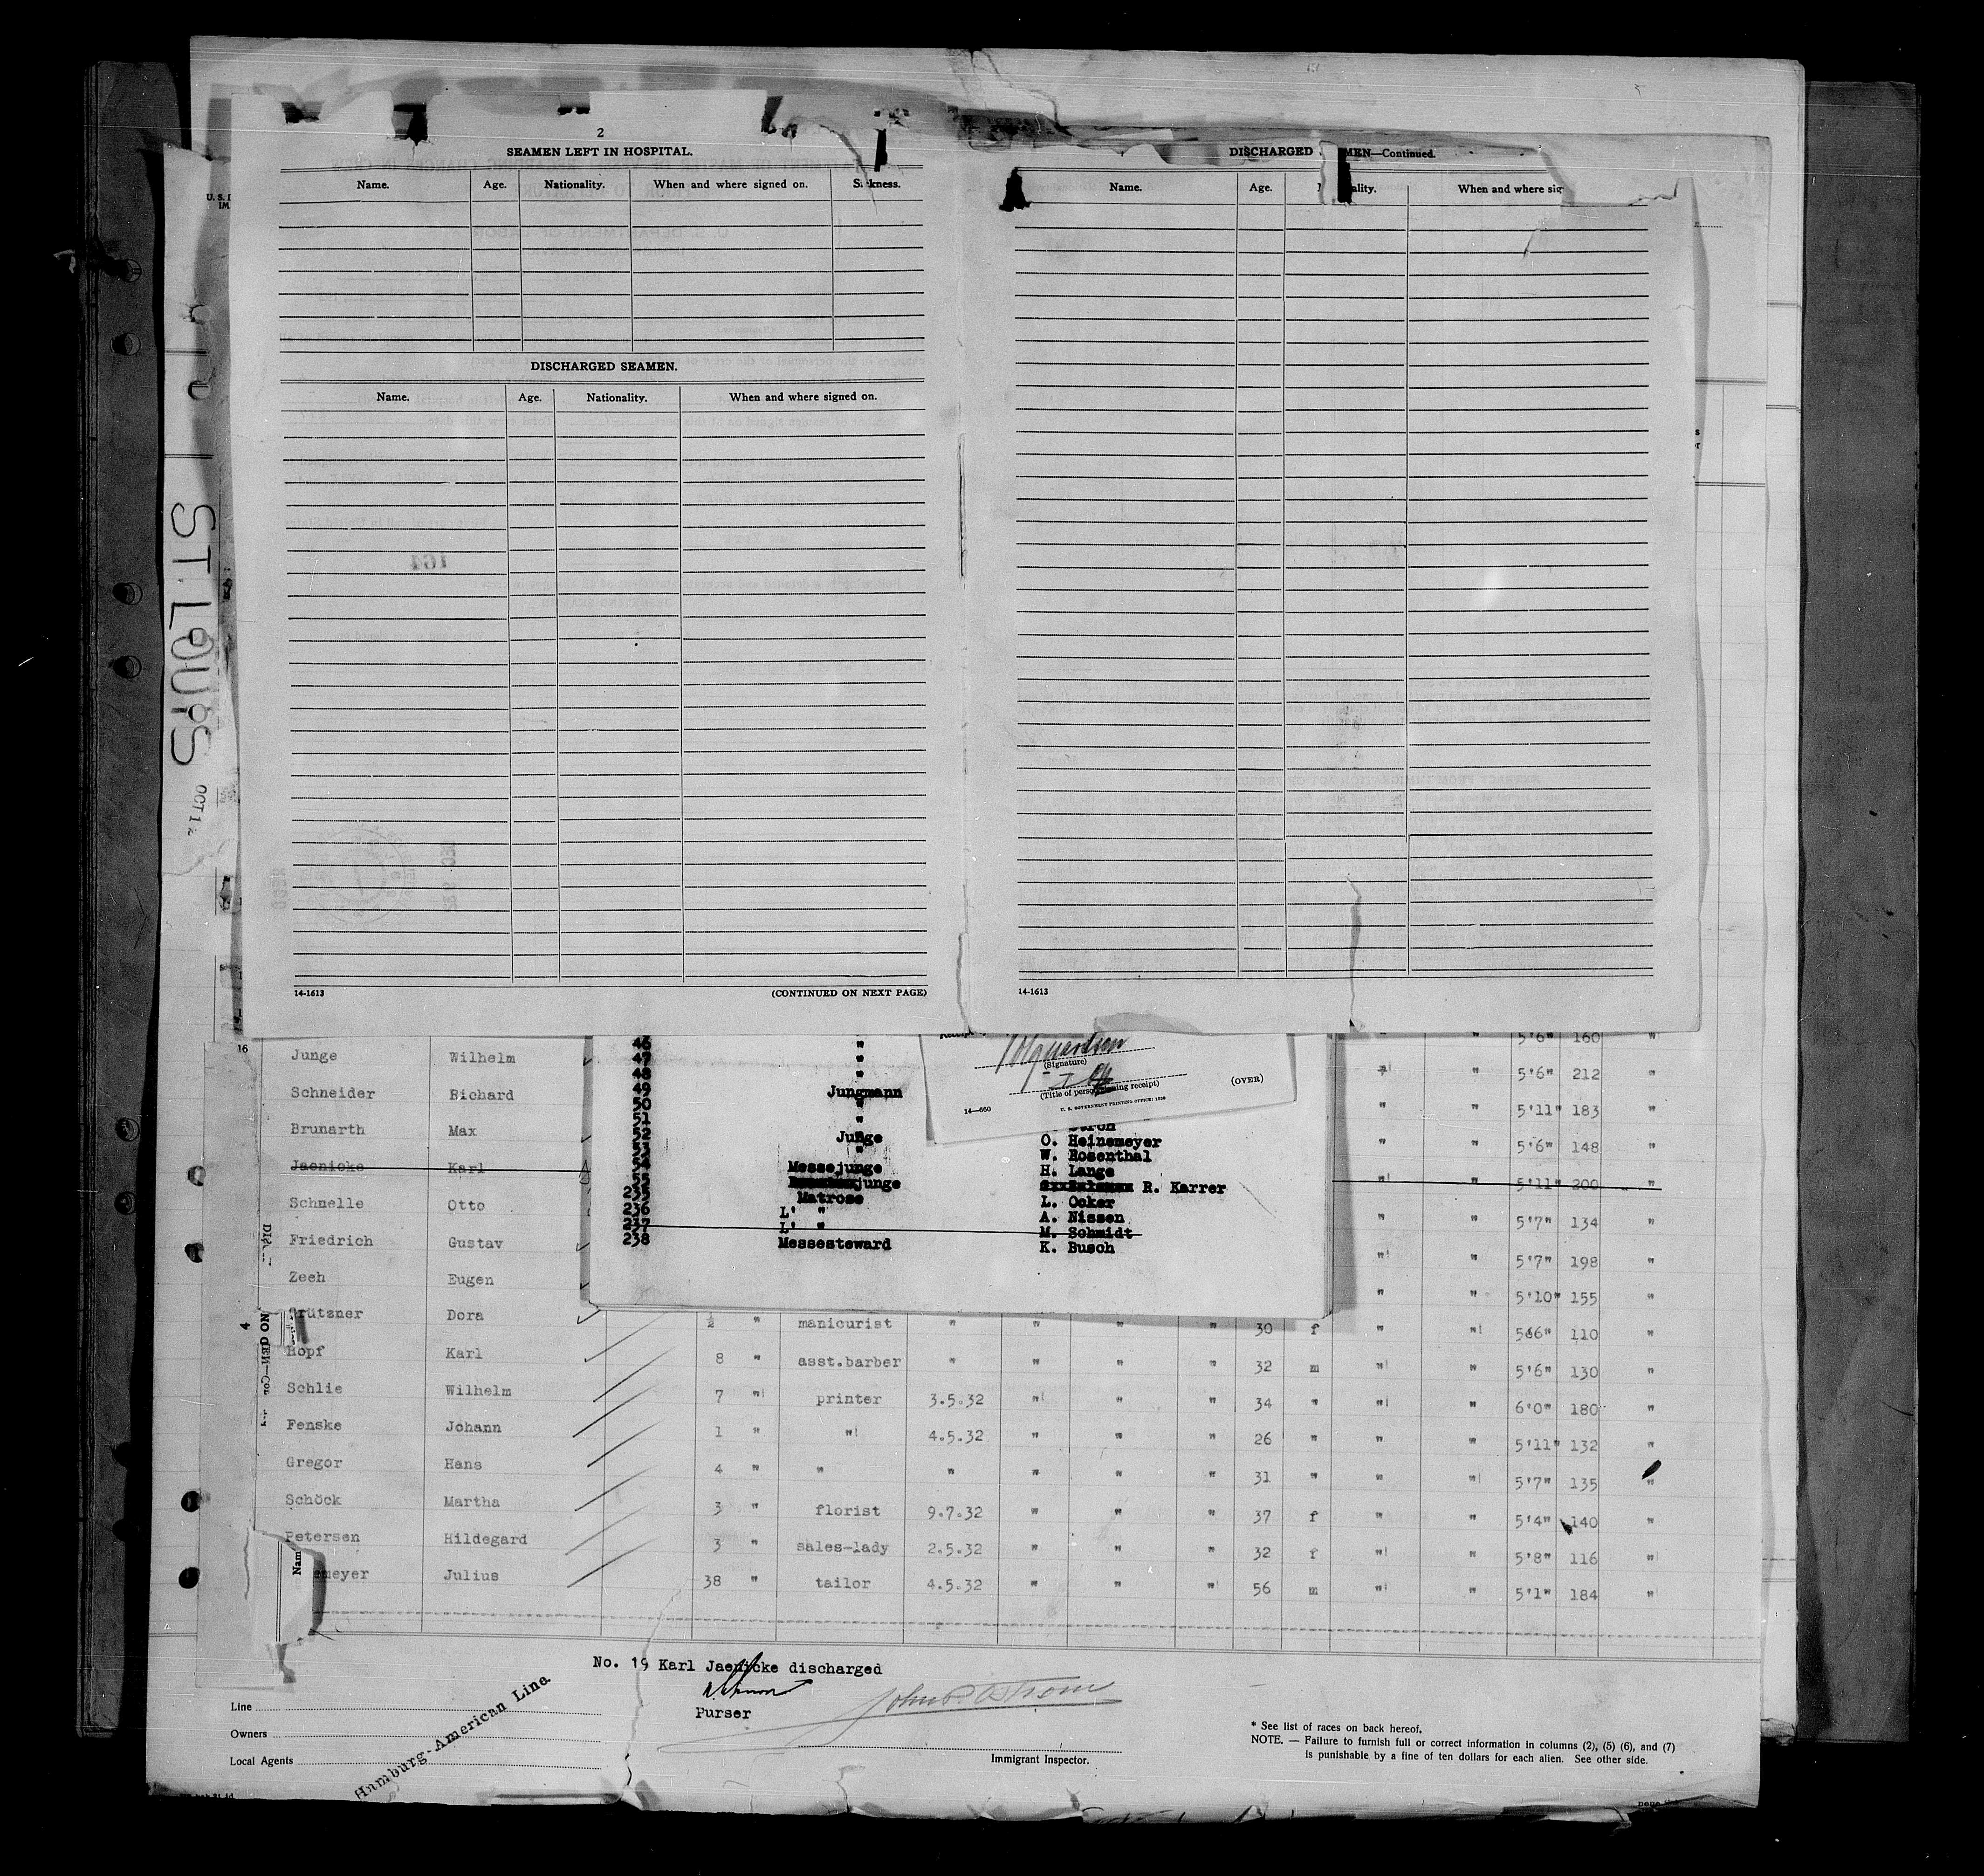 2
SEAMEN LEFT IN HOSPITAL.
Name. Age. Nationality. When and where signed on. Sickness.
DISCHARGED SEAMEN.
Name. Age. Nationality. When and where signed on.
14-1613 (CONTINUED ON NEXT PAGE)
DISCHARGED MEN—Continued.
Name. Age. ality. When and where sig
14-1613
U. S.
ST. LOUIS
OCT 1
16
4
46 "
47 "
48 "
49 Jungmann
50 "
51 "
52 Junge O. Heinemeyer
53 " W. Rosenthal
54 Messejunge H. Lange
55 junge R. Karrer
235 Matrose L. Ocker
236 L' " A. Nissen
237 L' " M. Schmidt
238 Messesteward K. Busch
(Signature)
(Title of person making receipt)
(OVER)
14—660 U. S. GOVERNMENT PRINTING OFFICE:
5'6" 160 "
Junge Wilhelm " " 5'6" 212 "
Schneider Richard " " 5'11" 183 "
Brunarth Max " " 5'6" 148 "
Jaenicke Karl " " 5'11" 200 "
Schnelle Otto " " 5'7" 134 "
Friedrich Gustav " " 5'7" 198 "
Zeeh Eugen " " 5'10" 155 "
Grützner Dora " manicurist " " " " 30 f " " 5'6" 110 "
Hopf Karl 8 " asst.barber " " " " 32 m " " 5'6" 130 "
Schlie Wilhelm 7 " printer 3.5.32 " " " 34 " " " 6'0" 180 "
Fenske Johann 1 " " 4.5.32 " " " 26 " " " 5'11" 132 "
Gregor Hans 4 " " " " " " 31 " " " 5'7" 135
Schöck Martha 3 " florist 9.7.32 " " " 37 f " " 5'4" 140 "
Petersen Hildegard 3 " sales-lady 2.5.32 " " " 32 f " " 5'8" 116 "
emeyer Julius 38 " tailor 4.5.32 " " " 56 m " " 5'1" 184 "
No. 19 Karl Jaenicke discharged
Purser
Line
Owners
Local Agents
Hamburg-American Line.
Immigrant Inspector.
* See list of races on back hereof.
NOTE. — Failure to furnish full or correct information in columns (2), (5) (6), and (7)
is punishable by a fine of ten dollars for each alien. See other side.